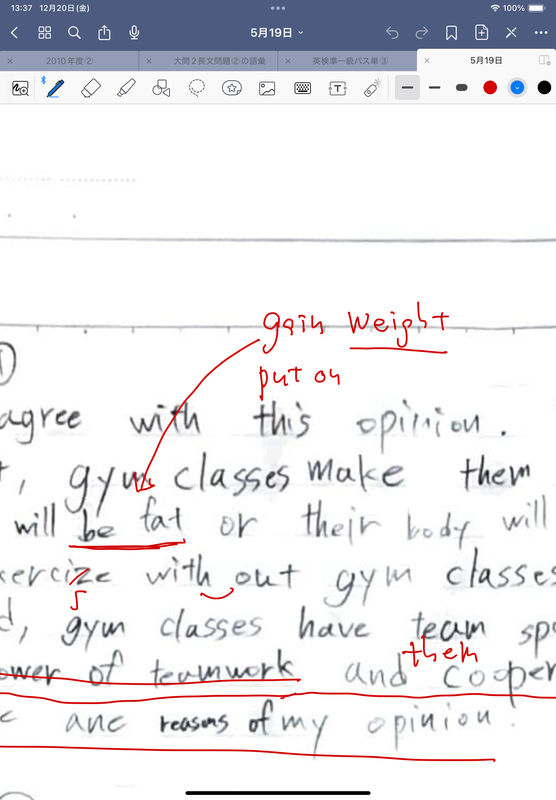 13:37 12月20日(金)
100%
5月19日
2010年度②
大問2長文問題②の語彙
英検準一級パス単③
5月19日
gain weight
put on
①
agree with this opinion.
, gym classes make them
will be fat or their body will
ercize with out gym classes
s
d, gym classes have team spo
them
ower of teamwork and cooper
are reasons of my opinion.